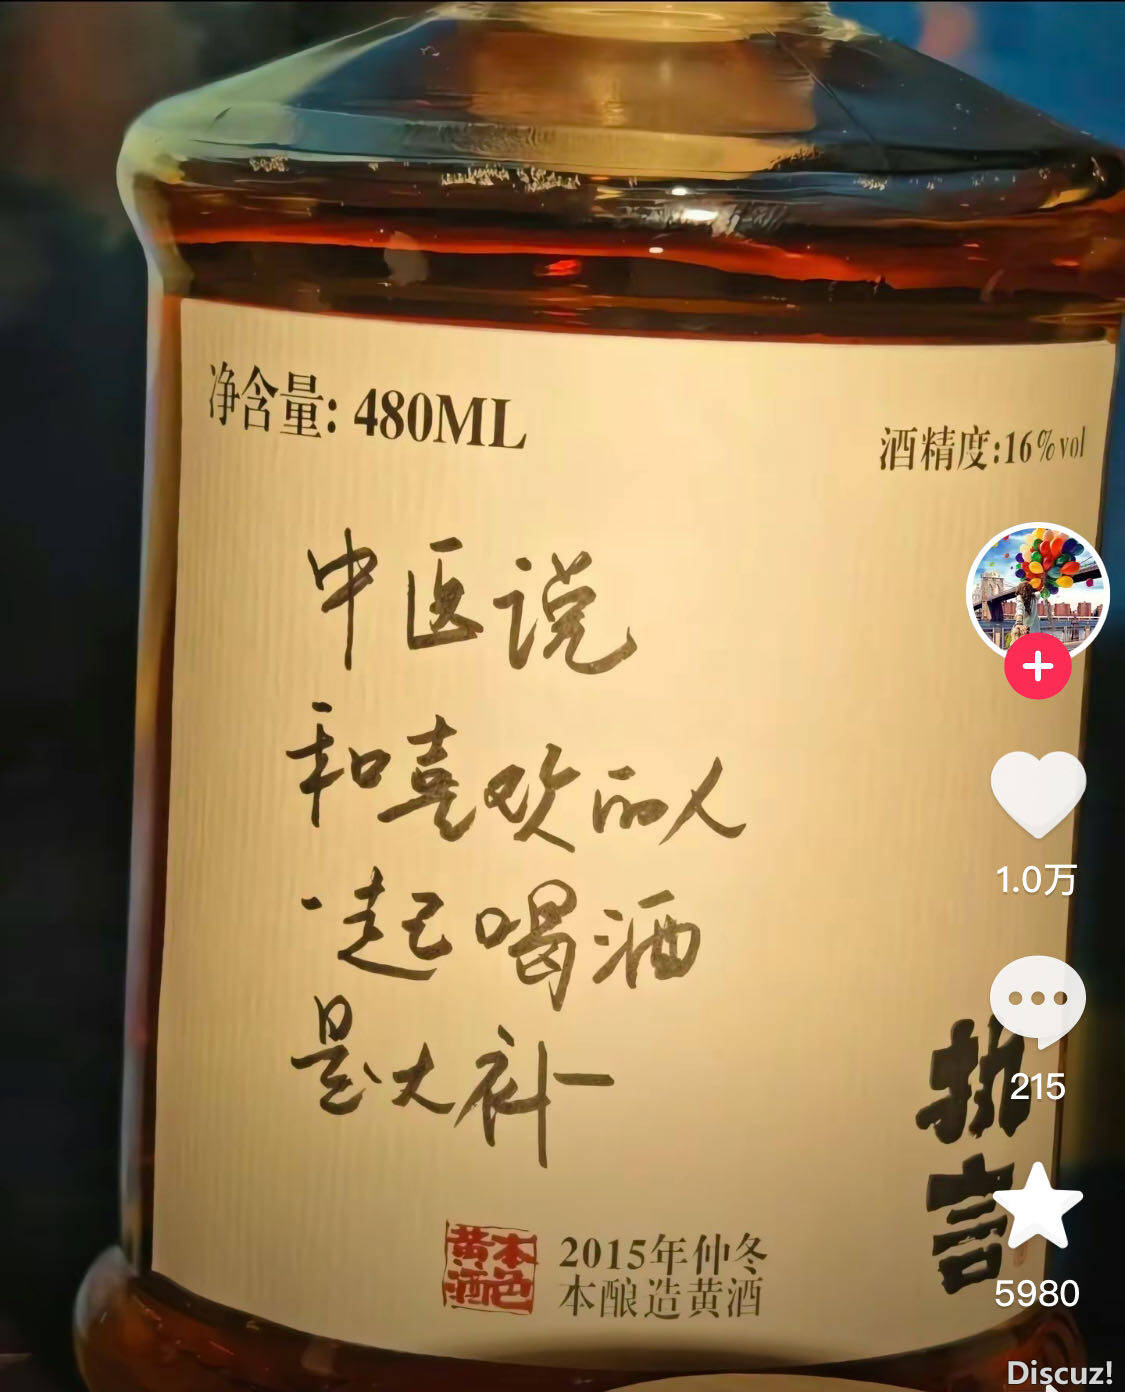 净含量: 480ML
酒精度:16%vol
中医说
和喜欢的人
一起喝酒
是大补
执言
本色黄酒
2015年仲冬
本酿造黄酒
1.0万
215
5980
Discuz!